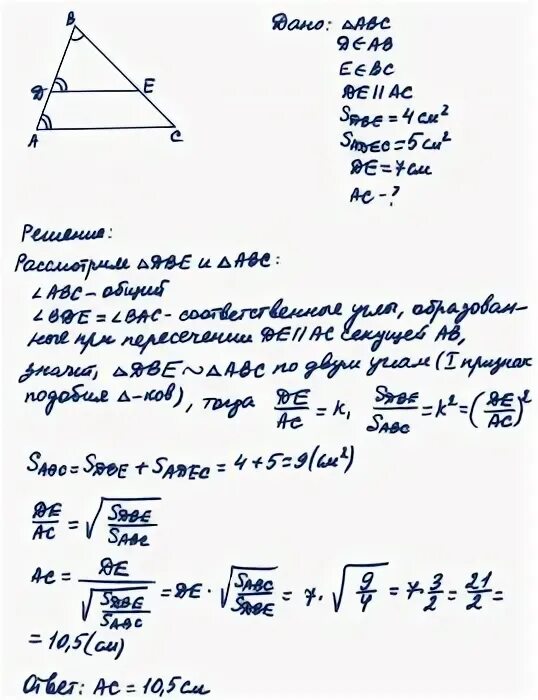 B
D
E
A
C
Дано: △ABC
D∈AB
E∈BC
DE∥AC
S_DBE = 4 см²
S_ADEC = 5 см²
DE = 7 см
AC - ?
Решение:
Рассмотрим △DBE и △ABC:
∠ABC - общий
∠BDE = ∠BAC - соответственные углы, образован-
ные при пересечении DE∥AC секущей AB,
значит, △DBE ~ △ABC по двум углам (I признак
подобия △-ков), тогда DE/AC = k, S_DBE/S_ABC = k² = (DE/AC)²
S_ABC = S_DBE + S_ADEC = 4 + 5 = 9 (см²)
DE/AC = √(S_DBE/S_ABC)
AC = DE/√(S_DBE/S_ABC) = DE · √(S_ABC/S_DBE) = 7 · √(9/4) = 7 · 3/2 = 21/2 =
= 10,5 (см)
Ответ: AC = 10,5 см